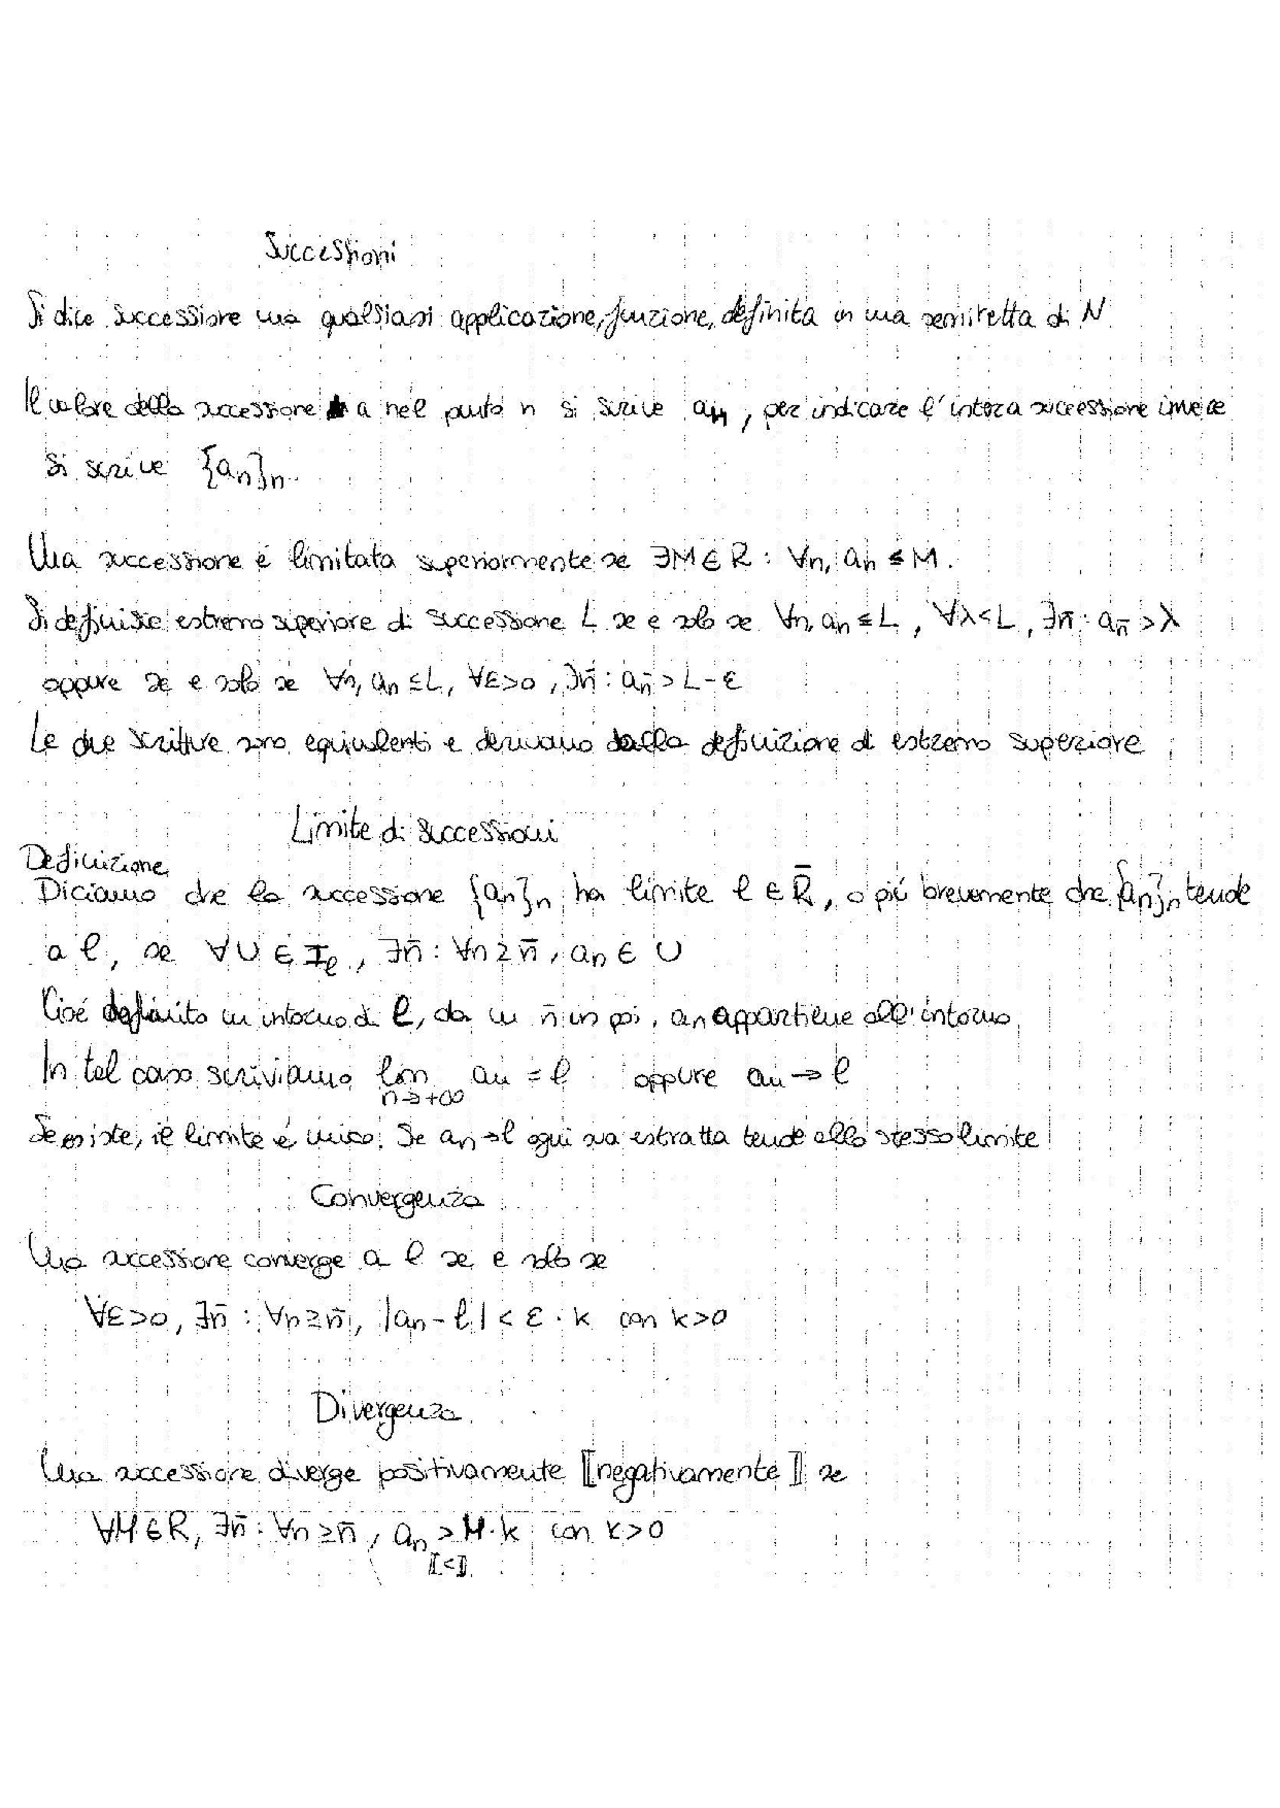 Successioni
Si dice successione una qualsiasi applicazione, funzione, definita in una semiretta di N
Il valore della successione a nel punto n si scrive aₙ, per indicare l'intera successione invece
si scrive {aₙ}ₙ.
Una successione é limitata superiormente se ∃M∈R : ∀n, aₙ ≤ M.
Si definisce estremo superiore di successione L se e solo se ∀n, aₙ ≤ L, ∀λ<L, ∃n̄ : a_n̄ > λ
oppure se e solo se ∀n, aₙ ≤ L, ∀ε>0, ∃n̄ : a_n̄ > L-ε
Le due scritture sono equivalenti e derivano dalla definizione di estremo superiore
Limite di successioni
Definizione
Diciamo che la successione {aₙ}ₙ ha limite ℓ ∈ R̄, o piú brevemente che {aₙ}ₙ tende
a ℓ, se ∀U ∈ I_ℓ, ∃n̄ : ∀n ≥ n̄, aₙ ∈ U
Cioé definito un intorno di ℓ, da un n̄ in poi, aₙ appartiene all'intorno
In tal caso scriviamo lim aₙ = ℓ oppure aₙ → ℓ
n→+∞
Se esiste, il limite é unico. Se aₙ→ℓ ogni sua estratta tende allo stesso limite
Convergenza
Una successione converge a ℓ se e solo se
∀ε>0, ∃n̄ : ∀n≥n̄, |aₙ - ℓ| < ε · k con k>0
Divergenza
Una successione diverge positivamente ⟦negativamente⟧ se
∀M∈R, ∃n̄ : ∀n ≥ n̄, aₙ > M·k con k>0
⟦<⟧